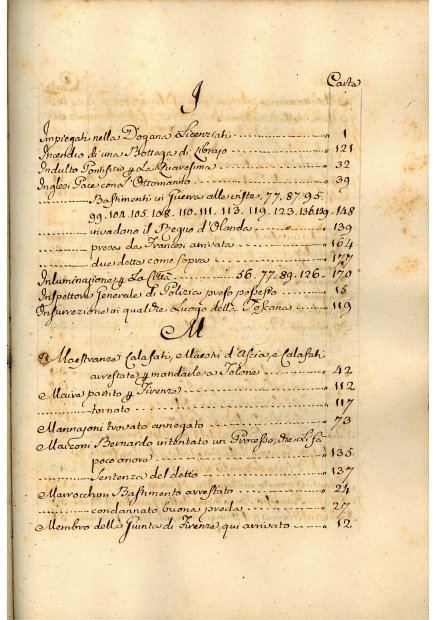 Carta
I
Impiegati nella Dogana Licenziati 1
Incendio di una Bottega di Librajo 121
Indulto Pontificio p La Quaresima 32
Inglesi Pace con Ottomanno 39
Bastimenti in Guerra alle viste. 77. 87. 95.
99. 104. 105. 108. 110. 111. 113. 119. 123. 136. 139. 148
invadano il Regno d'Olanda 139
presa da Francesi arrivata 164
due dette come sopra 177
Inluminazione p La Città 56. 77. 89. 126. 170
Ispettore Generale di Polizia preso possesso 15
Insurrezione in qualche Luogo della Toscana 119
M
Maestranze Calafati, Maestri d'Ascia e Calafati
arrestate p mandarle a Tolone 42
Maire partito p Firenze 112
tornato 117
Mannajoni trovato annegato 73
Marzoni Bernardo intentato un Processo, che Li fà
poco onore 135
Sentenza del detto 137
Marrocchini Bastimento arrestato 24
condannato buona preda 27
Membro della Giunta di Firenze qui arrivato 12